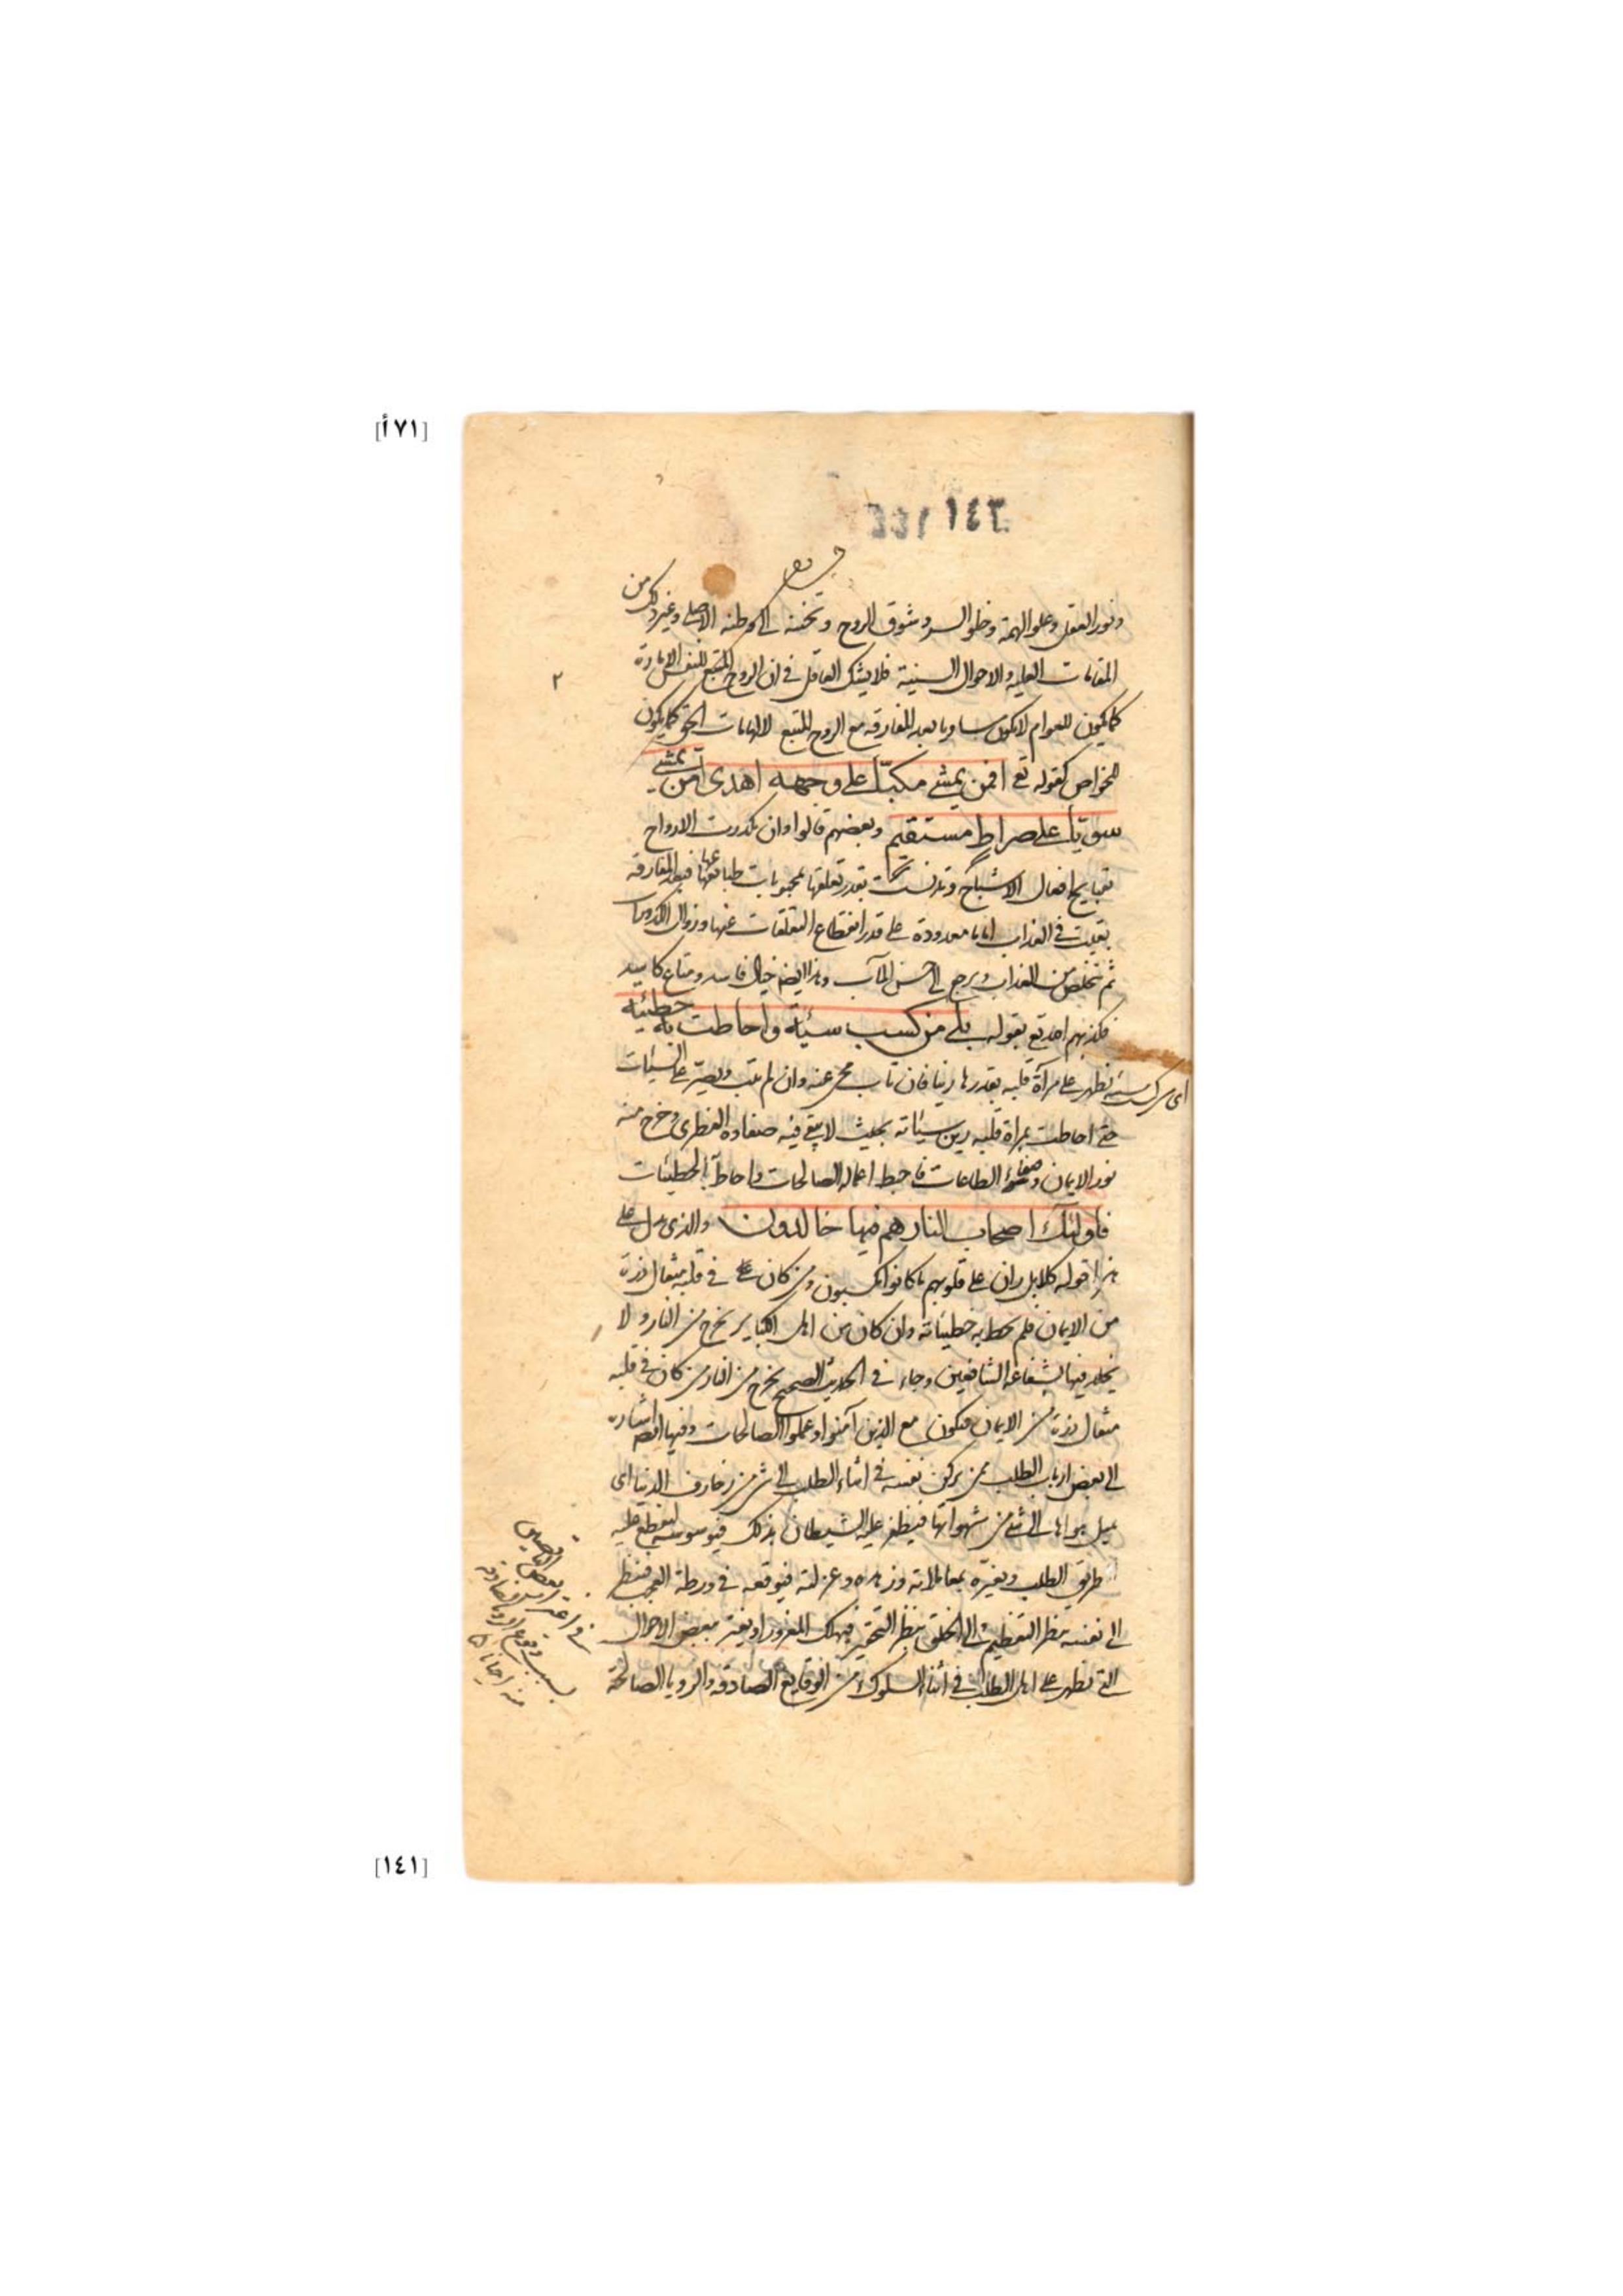 [٧١أ]
ونور العقل وعلو الهمة وخلو السر وشوق الروح وتحننه الى وطنه الاصلي وغير ذلك من
المقامات العلية والاحوال السنية فلا يشك العاقل في ان الروح المتبع للنفس الامارة
كما يكون للعوام لا يكون مساويا بعد المفارقة مع الروح المتبع لالهامات الحق كما يكون
للخواص كقوله تع افمن يمشي مكبّا على وجهه اهدى امن يمشي
سويّا على صراط مستقيم وبعضهم قالوا وان تكدرت الارواح
بقبايح افعال الاشباح وتدنست بقدر تعلقها بمحبوبات طباعها فبعد المفارقة
بقيت في العذاب اياما معدودة على قدر انقطاع التعلقات عنها وزوال الكدورات
ثم تخلص من العذاب ويرجع الى حسن المآب وهذا ايضا خيال فاسد ومتاع كاسد
فكذبهم الله تع بقوله بلى من كسب سيئة واحاطت به خطيئته
اى من كسب سيئة تظهر على مرآة قلبه بقدرها رينا فان تاب محى عنه وان لم يتب ويصرّ على السيئات
حتى احاطت بمرآة قلبه رين سيئاته بحيث لا يبقى فيه صفاؤه الفطري وخرج منه
نور الايمان وضوء الطاعات فاحبط اعماله الصالحات واحاط به الخطيئات
فاولئك اصحاب النار هم فيها خالدون والذي يدل على
هذا قوله كلا بل ران على قلوبهم ما كانوا يكسبون ومن كان في قلبه مثقال ذرة
من الايمان فلم يحط به خطيئاته وان كان من اهل الكباير يخرج من النار ولا
يخلد فيها بشفاعة الشافعين وجاء في الحديث الصحيح يخرج من النار من كان في قلبه
مثقال ذرة من الايمان فيكون مع الذين آمنوا وعملوا الصالحات وفيها ايضا اشارة
الى بعض ارباب الطلب ممن يركن نفسه في اثناء الطلب الى شئ من زخارف الدنيا اى
يميل بهواها الى شئ من شهواتها فيظفر عليه الشيطان بذلك فيوسوسه ليقطع عليه
طريق الطلب ويغيره بمعاملاته وزهده وعزلته فيوقعه في ورطة العجب فينظر
الى نفسه بنظر التعظيم والى الخلق بنظر التحقير فيهلك المغرور او يغتر ببعض الاحوال
التي تظهر على اهل الطلب في اثناء السلوك من الوقايع الصادقة والرؤيا الصالحة
٢
[١٤١]